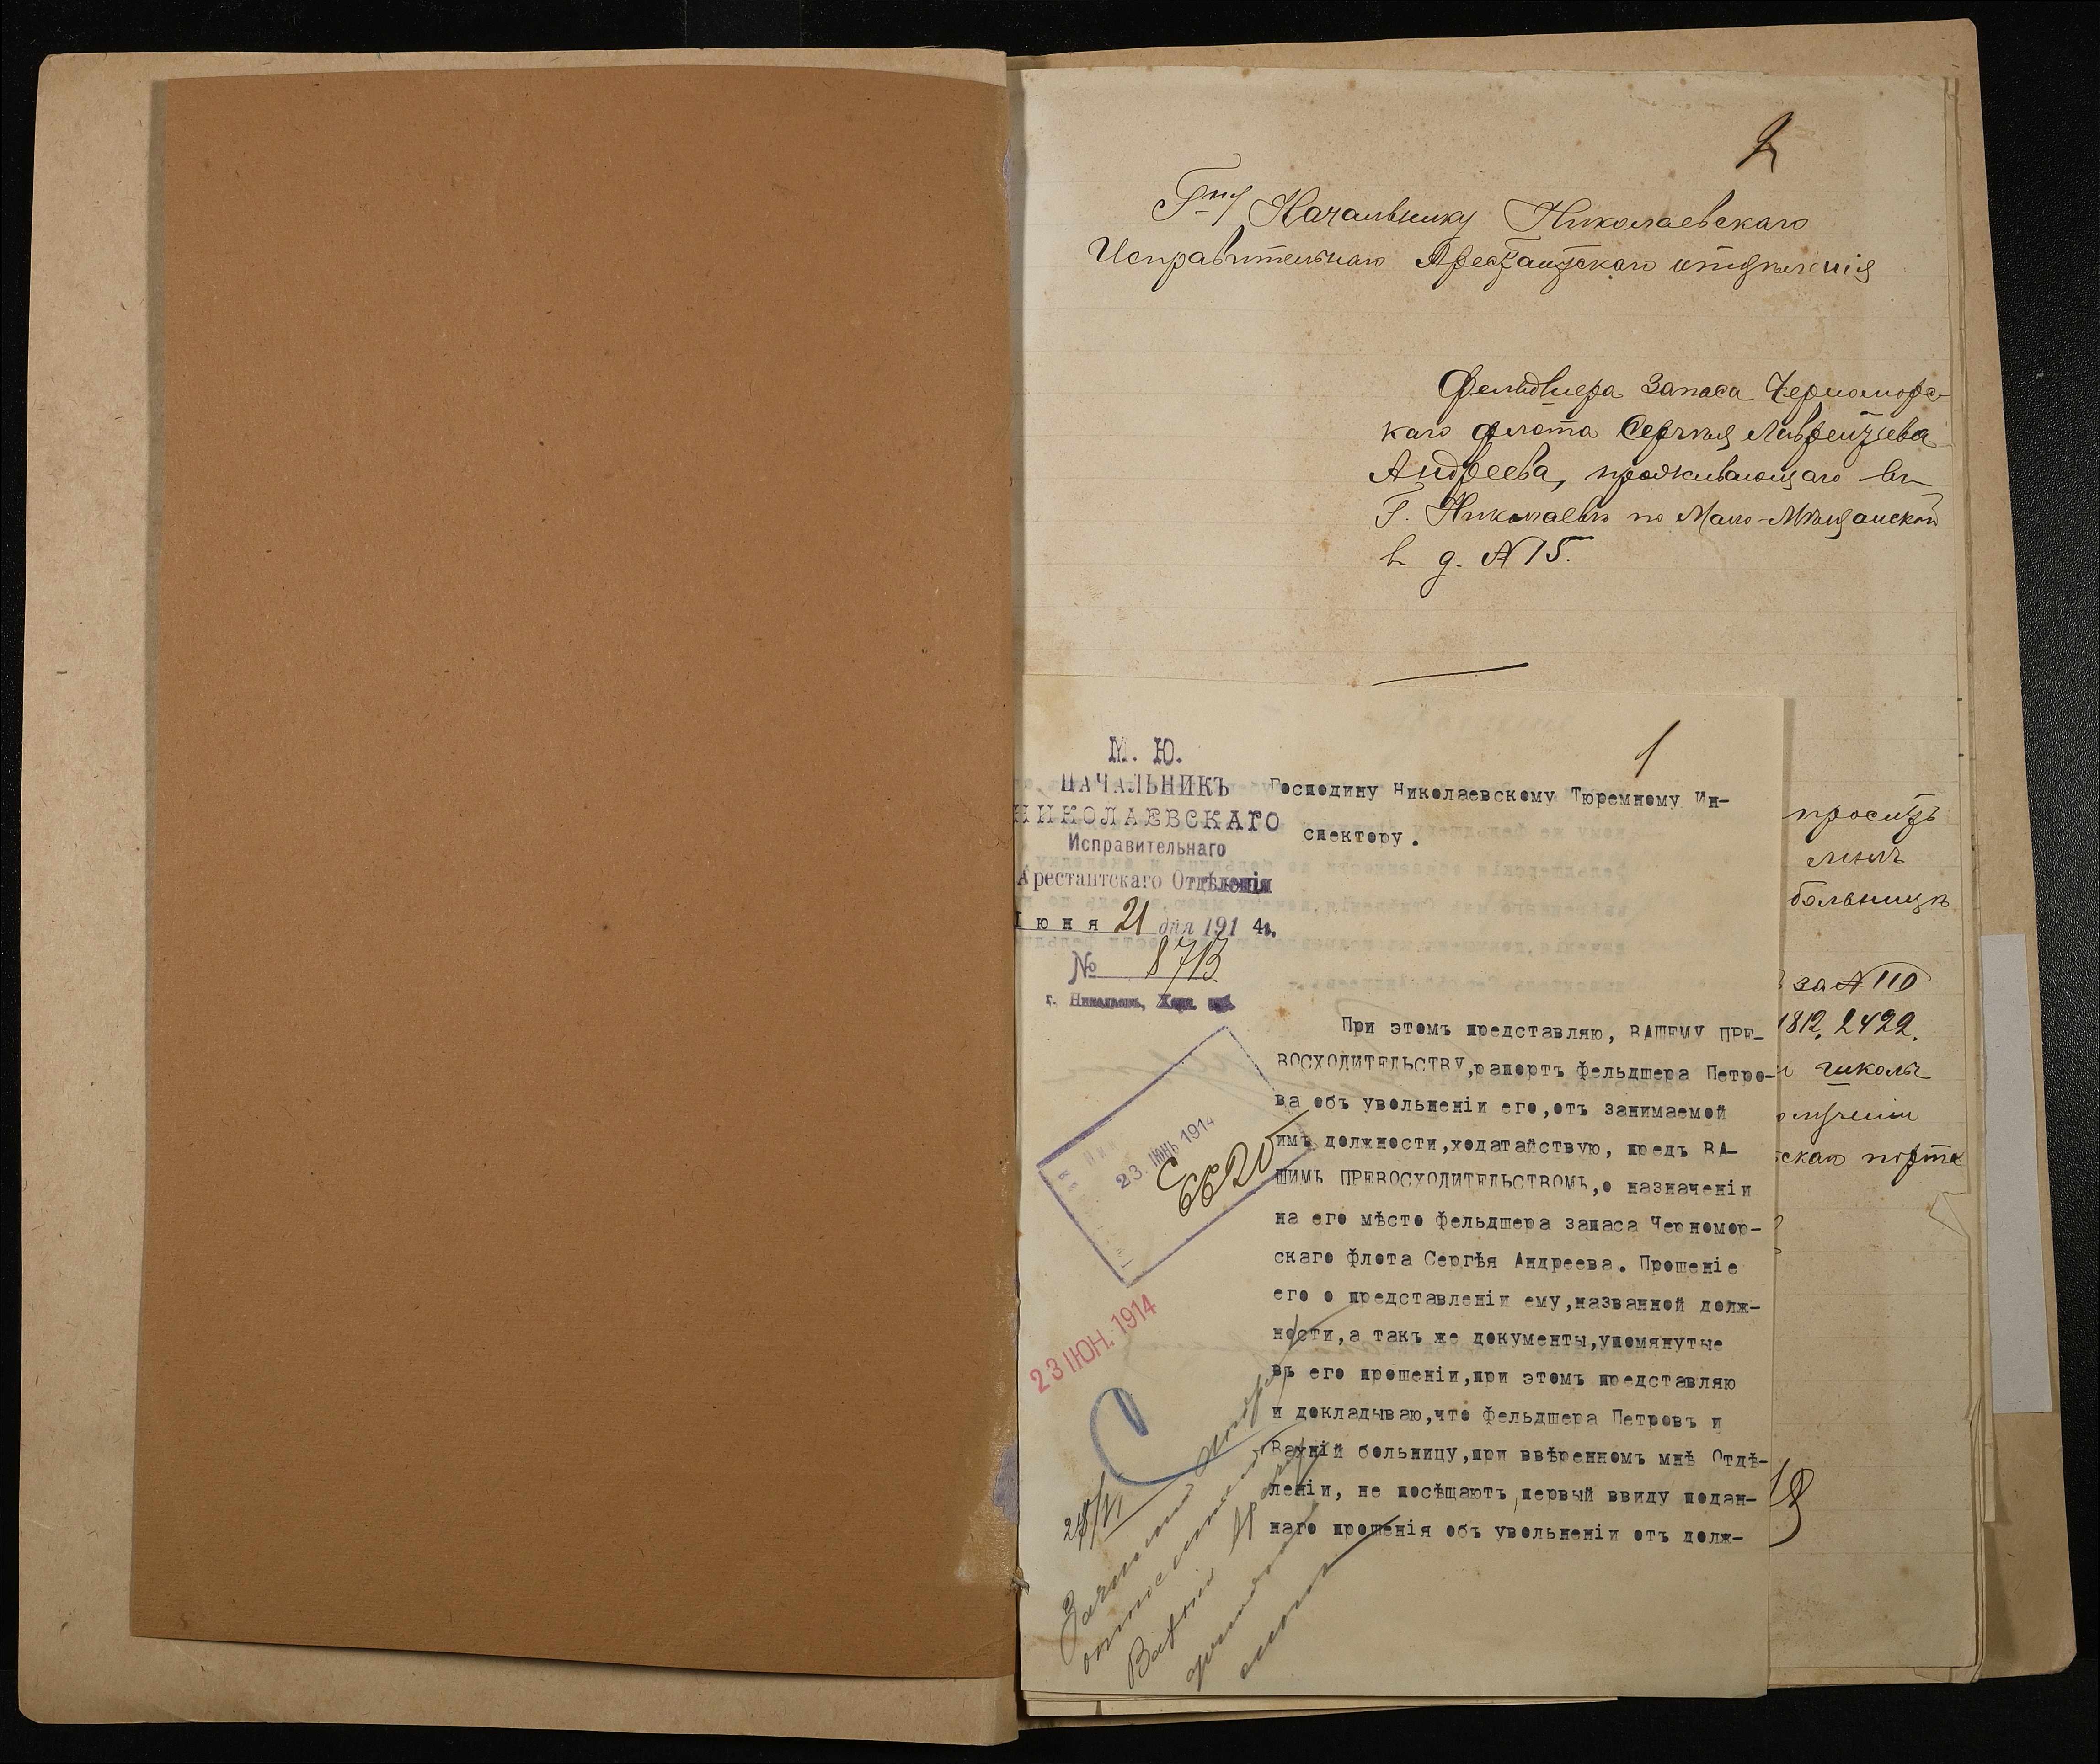 2
Г-ну Начальнику Николаевскаго
Исправительнаго Арестантскаго отдѣленія
Фельдшера запаса Черноморс-
каго флота Сергѣя Лаврентьева
Андреева, проживающаго въ
г. Николаевѣ по Мало-Мѣщанской
в д. №15.
проситъ
больницѣ
за №110
1812, 2422.
школы
1
М. Ю.
НАЧАЛЬНИКЪ
НИКОЛАЕВСКАГО
Исправительнаго
Арестантскаго Отдѣленія
Іюня 21 дня 1914г.
№ 8713
г. Николаевъ, Херс. губ.
Господину Николаевскому Тюремному Ин-
спектору.
При этомъ представляю, ВАШЕМУ ПРЕ-
ВОСХОДИТЕЛЬСТВУ,рапортъ фельдшера Петро-
ва объ увольненіи его,отъ занимаемой
имъ должности,ходатайствую, предъ ВА-
ШИМЪ ПРЕВОСХОДИТЕЛЬСТВОМЪ,о назначеніи
на его мѣсто фельдшера запаса Черномор-
скаго флота Сергѣя Андреева. Прошеніе
его о представленіи ему,названной долж-
ности,а такъ же документы,упомянутые
въ его прошеніи,при этомъ представляю
и докладываю,что фельдшера Петровъ и
Вахній больницу,при ввѣренномъ мнѣ Отдѣ-
леніи, не посѣщаютъ,первый ввиду подан-
наго прошенія объ увольненіи отъ долж-
23 ІЮНЬ 1914
23 ІЮН. 1914